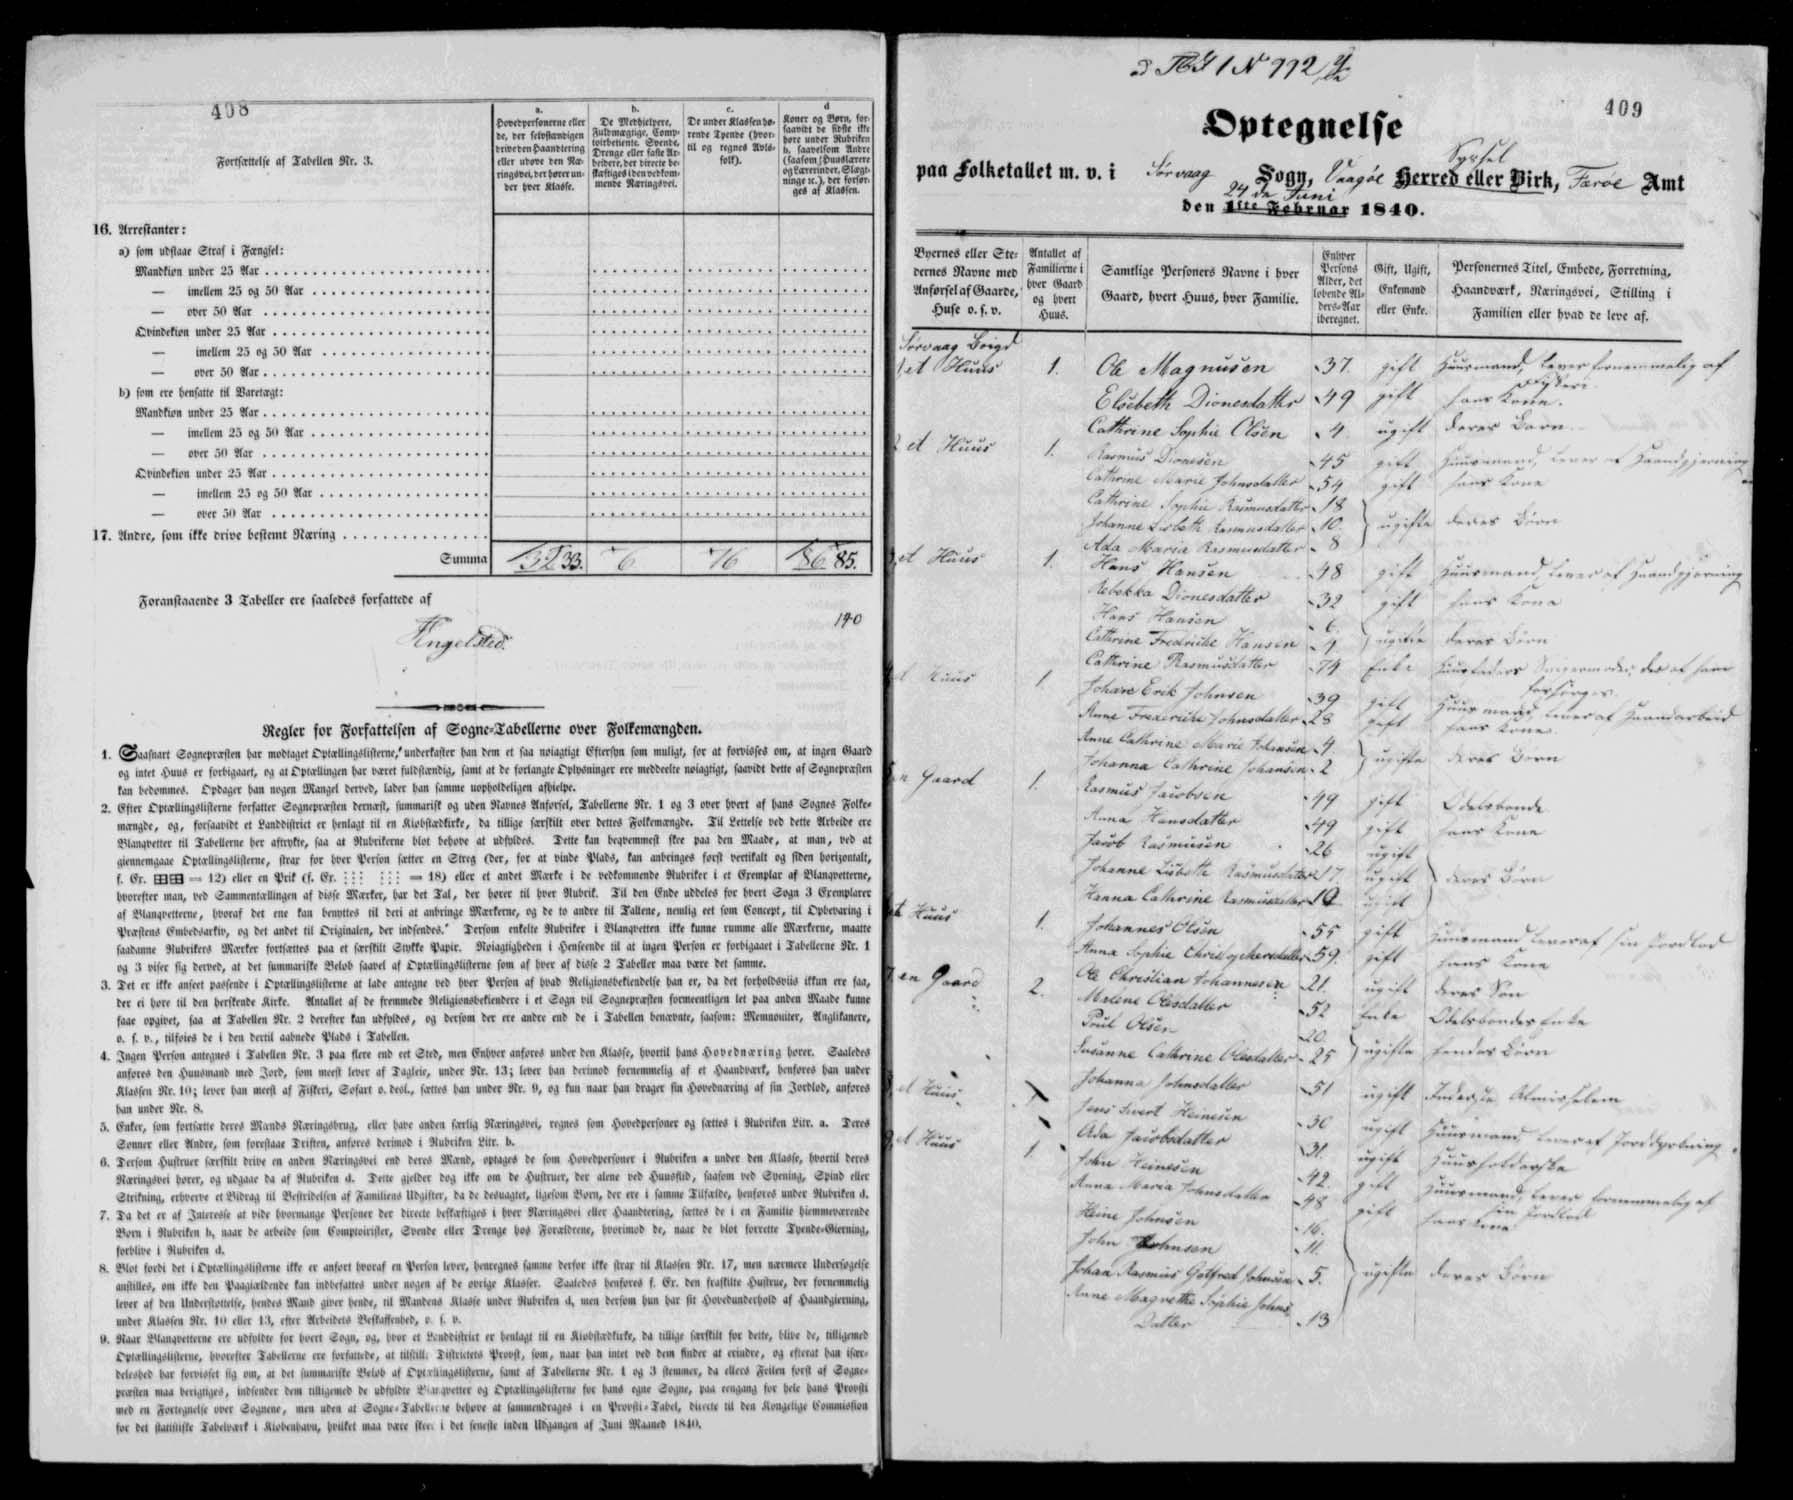 408
Fortsættelse af Tabellen Nr. 3.
a.
Hovedpersonerne eller de, der selvstændigen drive den Haandtering eller udøve den Næringsvei, der hører under hver Klasse.
b.
De Medhjelpere, Fuldmægtige, Comptoirbetiente, Svende, Drenge eller faste Arbeidere, der directe beskæftiges i den vedkommende Næringsvei.
c.
De under Klassen hørende Tyende (hvortil og regnes Avlsfolk).
d
Koner og Børn, forsaavidt de sidste ikke høre under Rubriken b, saavelsom Andre (saasom Huuslærere og Lærerinder, Slægtninge ꝛc.), der forsørges af Klassen.
16. Arrestanter:
a) som udstaae Straf i Fængsel:
Mandkiøn under 25 Aar
— imellem 25 og 50 Aar
— over 50 Aar
Qvindekiøn under 25 Aar
— imellem 25 og 50 Aar
— over 50 Aar
b) som ere hensatte til Varetægt:
Mandkiøn under 25 Aar
— imellem 25 og 50 Aar
— over 50 Aar
Qvindekiøn under 25 Aar
— imellem 25 og 50 Aar
— over 50 Aar
17. Andre, som ikke drive bestemt Næring
Summa 32 33. 6 16 86 85.
Foranstaaende 3 Tabeller ere saaledes forfattede af
140
Engelsted.
Regler for Forfattelsen af Sogne-Tabellerne over Folkemængden.
1. Saasnart Sognepræsten har modtaget Optællingslisterne, underkaster han dem et saa nøiagtigt Eftersyn som muligt, for at forvisses om, at ingen Gaard
og intet Huus er forbigaaet, og at Optællingen har været fuldstændig, samt at de forlangte Oplysninger ere meddeelte nøiagtigt, saavidt dette af Sognepræsten
kan bedømmes. Opdager han nogen Mangel derved, lader han samme uopholdeligen afhielpe.
2. Efter Optællingslisterne forfatter Sognepræsten dernæst, summarisk og uden Navnes Anførsel, Tabellerne Nr. 1 og 3 over hvert af hans Sognes Folke-
mængde, og, forsaavidt et Landdistrict er henlagt til en Kiøbstædkirke, da tillige særskilt over dettes Folkemængde. Til Lettelse ved dette Arbeide ere
Blanqvetter til Tabellerne her aftrykte, saa at Rubrikerne blot behøve at udfyldes. Dette kan beqvemmest skee paa den Maade, at man, ved at
giennemgaae Optællingslisterne, strax for hver Person sætter en Streg (der, for at vinde Plads, kan anbringes først vertikalt og siden horizontalt,
f. Ex. = 12) eller en Prik (f. Ex. = 18) eller et andet Mærke i de vedkommende Rubriker i et Exemplar af Blanqvetterne,
hvorefter man, ved Sammentællingen af disse Mærker, har det Tal, der hører til hver Rubrik. Til den Ende uddeles for hvert Sogn 3 Exemplarer
af Blanqvetterne, hvoraf det ene kan benyttes til deri at anbringe Mærkerne, og de to andre til Tallene, nemlig eet som Concept, til Opbevaring i
Præstens Embedsarkiv, og det andet til Originalen, der indsendes. Dersom enkelte Rubriker i Blanqvetten ikke kunne rumme alle Mærkerne, maatte
saadanne Rubrikers Mærker fortsættes paa et særskilt Stykke Papir. Nøiagtigheden i Henseende til at ingen Person er forbigaaet i Tabellerne Nr. 1
og 3 viser sig derved, at det summariske Beløb saavel af Optællingslisterne som af hver af disse 2 Tabeller maa være det samme.
3. Det er ikke anseet passende i Optællingslisterne at lade antegne ved hver Person af hvad Religionsbekiendelse han er, da det forholdsviis ikkun ere faa,
der ei høre til den herskende Kirke. Antallet af de fremmede Religionsbekiendere i et Sogn vil Sognepræsten formeentligen let paa anden Maade kunne
faae opgivet, saa at Tabellen Nr. 2 derefter kan udfyldes, og dersom der ere andre end de i Tabellen benævnte, saasom: Memnoniter, Anglikanere,
o. s. v., tilføies de i den dertil aabnede Plads i Tabellen.
4. Ingen Person antegnes i Tabellen Nr. 3 paa flere end eet Sted, men Enhver anføres under den Klasse, hvortil hans Hovednæring hører. Saaledes
anføres den Huusmand med Jord, som meest lever af Dagleie, under Nr. 13; lever han derimod fornemmelig af et Haandværk, henføres han under
Klassen Nr. 10; lever han meest af Fiskeri, Søfart o. desl., sættes han under Nr. 9, og kun naar han drager sin Hovednæring af sin Jordlod, anføres
han under Nr. 8.
5. Enker, som fortsætte deres Mands Næringsbrug, eller have anden særlig Næringsvei, regnes som Hovedpersoner og sættes i Rubriken Litr. a. Deres
Sønner eller Andre, som forestaae Driften, anføres derimod i Rubriken Litr. b.
6. Dersom Hustruer særskilt drive en anden Næringsvei end deres Mænd, optages de som Hovedpersoner i Rubriken a under den Klasse, hvortil deres
Næringsvei hører, og udgaae da af Rubriken d. Dette gjelder dog ikke om de Hustruer, der alene ved Huusflid, saasom ved Syening, Spind eller
Strikning, erhverve et Bidrag til Bestridelsen af Familiens Udgifter, da de desuagtet, ligesom Børn, der ere i samme Tilfælde, henføres under Rubriken d.
7. Da det er af Interesse at vide hvormange Personer der directe beskæftiges i hver Næringsvei eller Haandtering, sættes de i en Familie hiemmeværende
Børn i Rubriken b, naar de arbeide som Comptoirister, Svende eller Drenge hos Forældrene, hvorimod de, naar de blot forrette Tyende-Gierning,
forblive i Rubriken d.
8. Blot fordi det i Optællingslisterne ikke er anført hvoraf en Person lever, henregnes samme derfor ikke strax til Klassen Nr. 17, men nærmere Undersøgelse
anstilles, om ikke den Paagiældende kan indbefattes under nogen af de øvrige Klasser. Saaledes henføres f. Ex. den fraskilte Hustrue, der fornemmelig
lever af den Understøttelse, hendes Mand giver hende, til Mandens Klasse under Rubriken d, men dersom hun har sit Hovedunderhold af Haandgierning,
under Klassen Nr. 10 eller 13, efter Arbeidets Beskaffenhed, o. s. v.
9. Naar Blanqvetterne ere udfyldte for hvert Sogn, og, hvor et Landdistrict er henlagt til en Kiøbstædkirke, da tillige særskilt for dette, blive de, tilligemed
Optællingslisterne, hvorefter Tabellerne ere forfattede, at tilstille Districtets Provst, som, naar han intet ved dem finder at erindre, og efterat han især-
deleshed har forvisset sig om, at det summariske Beløb af Optællingslisterne, samt af Tabellerne Nr. 1 og 3 stemmer, da ellers Feilen først af Sogne-
præsten maa berigtiges, indsender dem tilligemed de udfyldte Blanqvetter og Optællingslisterne for hans egne Sogne, paa eengang for hele hans Provsti
med en Fortegnelse over Sognene, men uden at Sogne-Tabellerne behøve at sammendrages i en Provsti-Tabel, directe til den Kongelige Commission
for det statistiske Tabelværk i Kiøbenhavn, hvilket maa være skeet i det seneste inden Udgangen af Juni Maaned 1840.
409
Optegnelse
paa Folketallet m. v. i Sørvaag Sogn, Vaagøe Syssel Herred eller Birk, Færøe Amt
24de Juni
den 1ste Februar 1840.
Byernes eller Stedernes Navne med Anførsel af Gaarde, Huse o. s. v.
Antallet af Familierne i hver Gaard og hvert Huus.
Samtlige Personers Navne i hver Gaard, hvert Huus, hver Familie.
Enhver Persons Alder, det løbende Alders-Aar iberegnet.
Gift, Ugift, Enkemand eller Enke.
Personernes Titel, Embede, Forretning, Haandværk, Næringsvei, Stilling i Familien eller hvad de leve af.
Sørvaag Boigd
1, et Huus 1. Ole Magnusen 37. gift Huusmand, lever fornemmelig af Fiskeri
Elsebeth Dionesdatter 49 gift hans Kone.
Cathrine Sophie Olsen 4 ugift deres Barn
2 et Huus 1. Rasmus Dionesen 45 gift Huusmand, lever af Haandgjerning
Cathrine Marie Johnsdatter 54 gift hans Kone
Cathrine Sophie Rasmusdatter 18
Johanne Lisbeth Rasmusdatter 10. ugifte deres Børn
Ada Maria Rasmusdatter 8
et Huus 1. Hans Hansen 48 gift Huusmand, lever af Haandgjerning
Rebekka Dionesdatter 32 gift hans Kone
Hans Hansen 6
Cathrine Fredrikke Hansen 4 ugifte deres Børn
Cathrine Rasmusdatter 74 Enke Huusfaders Svigermoder, der af ham forsørges
Huus 1. Johan Erik Johnsen 39 gift Huusmand, lever af Haandarbeid
Anne Fredrikke Johnsdatter 28 gift hans Kone.
Anne Cathrine Marie Johansen 4
Johanna Cathrine Johansen 2 ugifte deres Børn
en Gaard 1. Rasmus Jacobsen 49 gift Odelsbonde
Anna Hansdatter 49 gift hans Kone
Jacob Rasmusen 26 ugift
Johanne Lisbeth Rasmusdatter 17 ugift deres Børn
Hanna Cathrine Rasmusdatter 10 ugift
et Huus 1. Johannes Olsen 55 gift Huusmand lever af sin Jordlod
Anna Sophie Christophersdatter 59. gift hans Kone
Ole Christian Johannesen 21. ugift deres Søn
7, en Gaard 2. Malene Olesdatter 52 Enke Odelsbondes Enke
Poul Olsen 20
Susanne Cathrine Olesdatter 25 ugifte hendes Børn
Johanna Johnsdatter 51 ugift Inderste Almisselem
et Huus 1 Jens Sivert Heinesen 30 ugift Huusmand, lever af Jorddyrkning
Ada Jacobsdatter 31. ugift Huusholderske
9, et Huus 1. John Heinesen 42. gift Huusmand, lever fornemmelig af sin Jordlod
Anna Maria Johnsdatter 48 gift hans Kone
Heine Johnsen 16.
John Johnsen 11.
Johan Rasmus Gotfred Johnsen 5. ugifte deres Børn
Anne Magrethe Sophie Johns
Datter 13